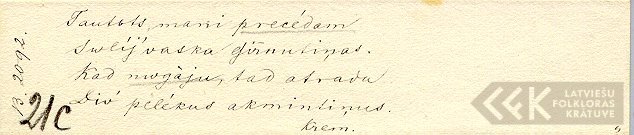 Tautots, mani precēdam
Swēij' vaska dzirnutiņas.
Kad nwogāju, tad atradu
Div' pēlēkus akmintiņus.
Krem.
B. 2092.
21C
LFK LATVIEŠU
FOLKLORAS
KRĀTUVE